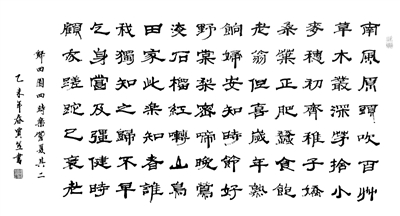 南風原頭吹百艸
草木叢深茅捨小
麥穗初齊稚子嬌
桑葉正肥蠶食飽
老翁但喜歲年熟
餉婦安知時節好
野棠梨密啼晚鶯
海石榴紅囀山鳥
田家此樂知者誰
我獨知之歸不早
乞身當及強健時
顧我蹉跎已衰老
歸田園四時樂春夏其二
乙未年春寅書